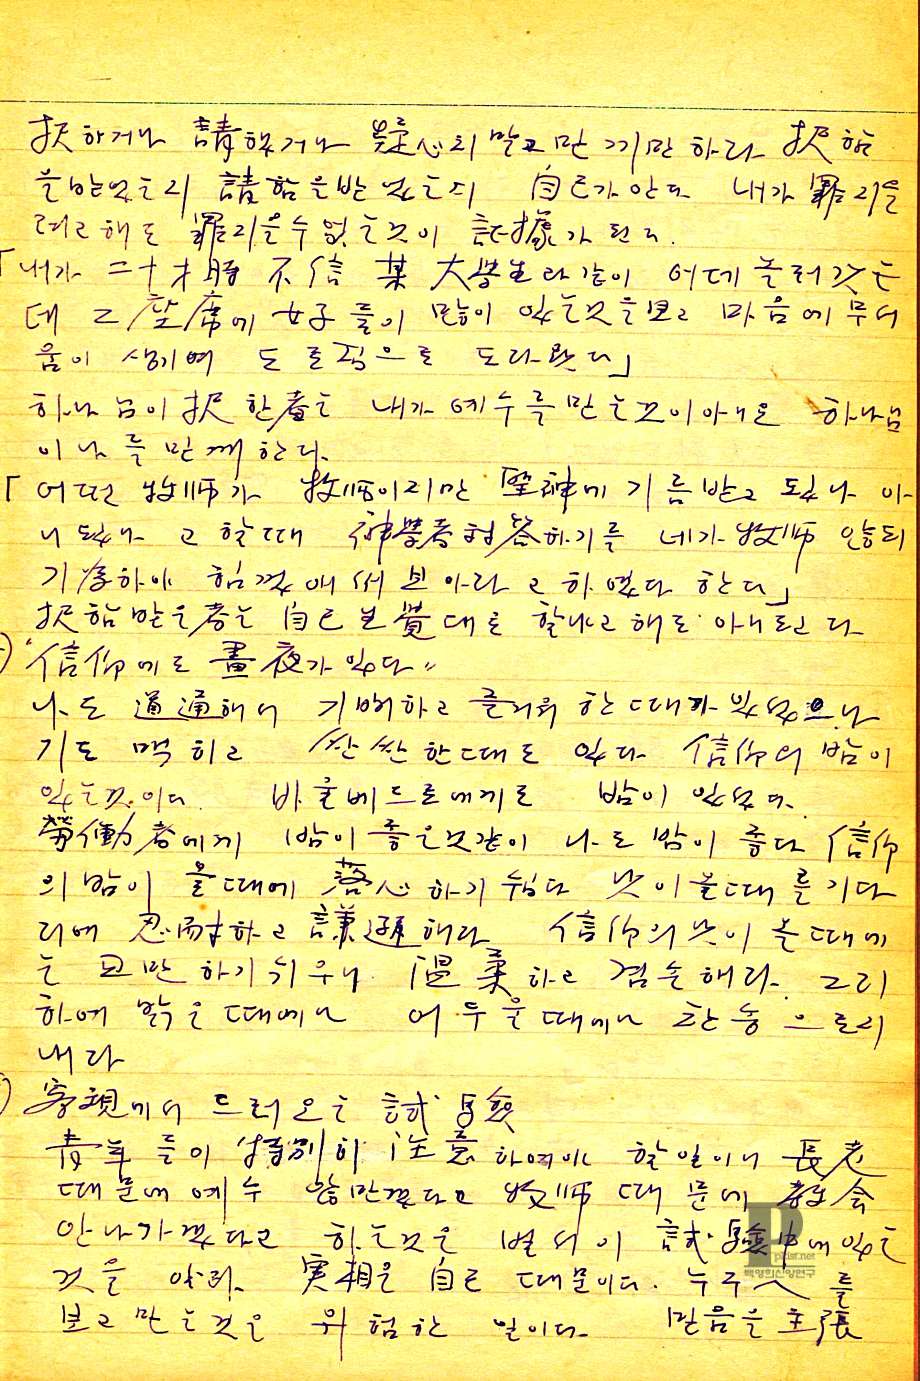 択하거나 請햇거나 疑心치말고 만 끼만 하라 択함
을받엇는지 請함을받엇는지 自己가안다 내가 罪지을
려고해도 罪지을수없는것이 証據가된다.
「내가 二十才時 不信 某 大学生과같이 어데 놀러갓는
데 그座席에 女子들이 많이 있는것을보고 마음에무서
움이 생기며 도로집으로 도라왓다」
하나님이 択한者는 내가 예수를믿는것이아니요 하나님
이나를믿게한다.
「어떤 牧師가 牧師이지만 聖神에 기름받고 되나 아
니되나 고할때 神學者 対答하기를 네가牧師 않되
기爲하야 힘껏애써보아라고하였다 한다」
択함받은者는 自己生覺대로 할나고해도 아니된다
"信仰에도 晝夜가있다"
나도 道通해서 기뻐하고 즐거워한때가 있었으나
기도 맥히고 싼싼한때도 있다 信仰의밤이
있는것이다. 바울베드로에게도 밤이 있었다.
勞働者에게 밤이좋은것같이 나도밤이 좋다 信仰
의밤이 올때에 落心하기쉽다 낫이올때를기다
리며 忍耐하고 謙遜해라 信仰의낫이 올때에
는 교만하기쉬우니 溫柔하고 겸손해라. 그리
하여 밝은때에나 어두울때에나 한층으로지
내라
客観에서 드러오는 試驗
青年들이 特別히 注意하여야 할일이니 長老
때문에 예수 않믿겠다고 牧師 때문에 敎会
안나가겠다고 하는것은 벌서이 試驗中에있는
것을 알라. 実相은 自己 때문이다. 누구人를
보고믿는것은 위험한 일이다. 믿음을主張
P
pkist.net
백영희신앙연구